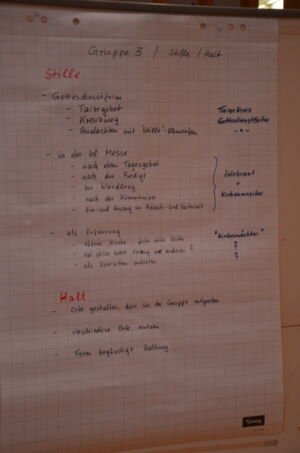 Gruppe 3 / Stille / Halt
Stille
- Gottesdienstform
- Taizegebet Taizekreis
- Kreuzweg Gottesdienstleiter
- Andachten mit "Stille"-Elementen - " -
- in der hl. Messe
- nach dem Tagesgebet
- nach der Predigt Zelebrant
- zur Wandlung +
- nach der Kommunion Kirchenmusiker
- Ein- und Auszug in Advents- und Fastenzeit
- als Erfahrung "Kirchenwächter"
- offene Kirche - feste stille Zeiten ?
- hat stilles Gebet ?
- als Exerzitien anbieten
Halt
- Orte gestalten, dass sie die Gruppe ansprechen
- verschiedene Orte nutzen
- Form begünstigt Haltung